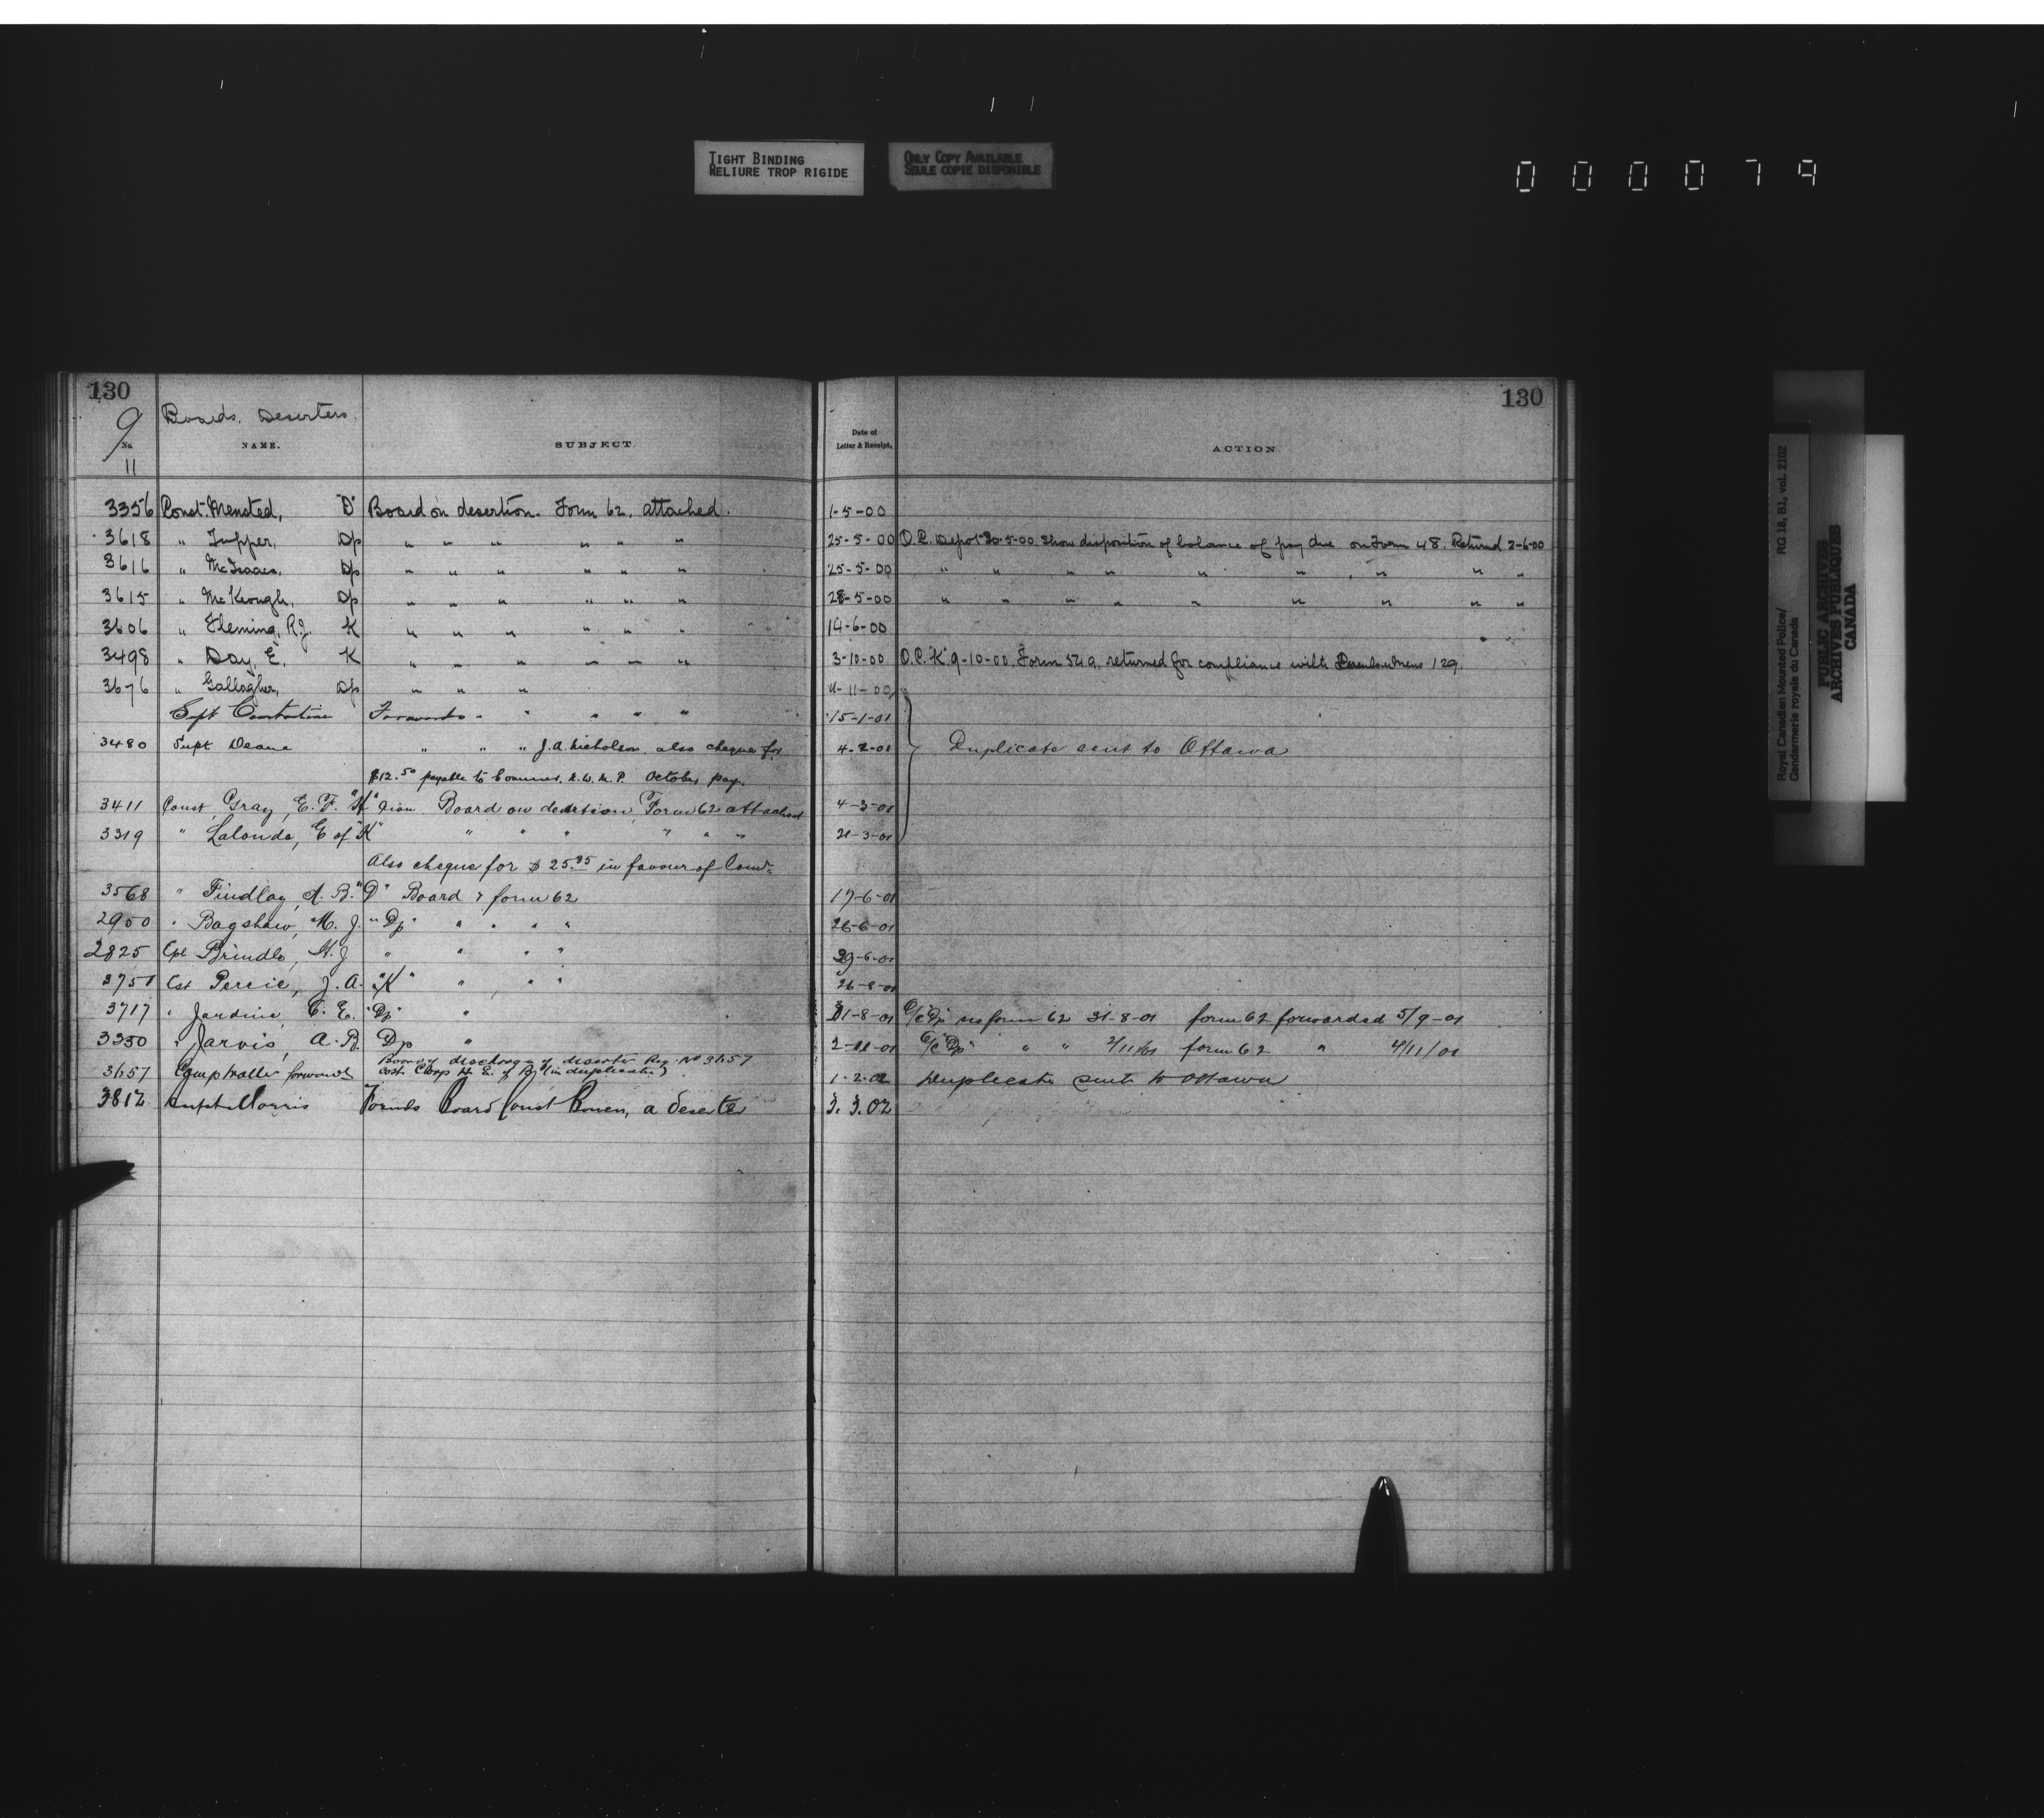 TIGHT BINDING
RELIURE TROP RIGIDE
ONLY COPY AVAILABLE
SEULE COPIE DISPONIBLE
0 0 0 0 7 9
130
130
9 Boards. Deserters.
No. NAME. SUBJECT. Date of Letter & Receipt. ACTION
11
3356 Const. Mensted, "D" Board on desertion. Form 62, attached. 1-5-00
3618 " Tupper, Dp " " " " " " 25-5-00 O.C. Depot 30-5-00. Show disposition of balance of pay due on Form 48. Returned 2-6-00
3616 " McIsaacs, Dp " " " " " " 25-5-00 " " " " " " " " "
3615 " McKeough, Dp " " " " " " 28-5-00 " " " " " " " " "
3606 " Fleming, R.J. K " " " " " " 14-6-00
3498 " Day, E. K " " " " " " 3-10-00 O.C. "K" 9-10-00. Form 52a, returned for compliance with 129.
3676 " Gallagher, Dp " " " 4-11-00
Supt Constantine Forwards " " " " " 15-1-01
3480 Supt Deane " " " J.A. Nicholson, also cheque for 4-2-01 Duplicate sent to Ottawa
$12.50 payable to Commr. N.W.M.P. October pay.
3411 Const Gray, E. F. "K" Divn. Board on desertion, Form 62 attached 4-3-01
3319 " Lalonde, E of "K" " " " " " " 21-3-01
Also cheque for $25.35 in favour of Comr.
3568 " Findlay, A. B. "D" Board & form 62 17-6-01
2950 " Bagshaw, M. J. "Dp" " " " " 26-6-01
2825 Cpl Brindle, H. J " " " " 29-6-01
3751 Cst Percie, J. A. "K" " " " 26-8-01
3717 " Jardine, C. E. "Dp" " 31-8-01 O/C "Dp" no form 62 31-8-01 form 62 forwarded 5/9-01
3350 " Jarvis, A. B. Dp " 2-11-01 O/C "Dp" " " 2/11/01 form 62 " 4/11/01
3657 Comptroller forwards Board of discharge of deserter Reg. No 3657
Const. H. E. of B. (in duplicate) 1-2-02 Duplicate sent to Ottawa
3812 Supt Morris Forwds Board Const Bowen, a deserter 3.3.02
Royal Canadian Mounted Police/ RG 18, B1, vol. 2102
Gendarmerie royale du Canada
PUBLIC ARCHIVES
ARCHIVES PUBLIQUES
CANADA